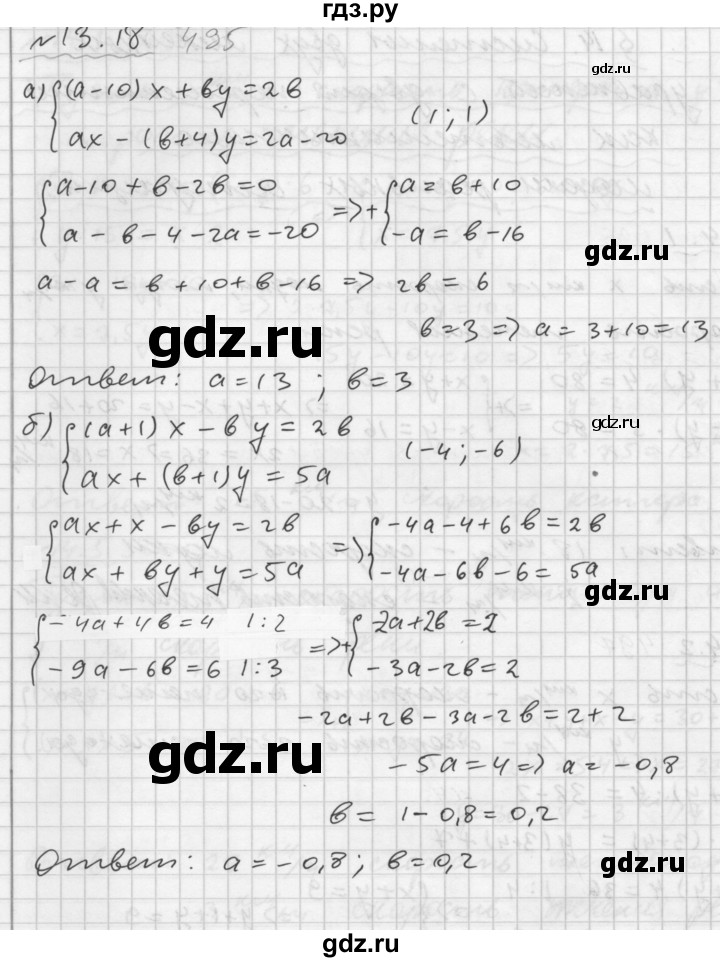 гдз.ру
№13.18 495
gdz.ru
а) {(a-10)x + вy = 2в
ax - (в+4)y = 2a - 20
(1; 1)
{a-10 + в - 2в = 0
a - в - 4 - 2a = -20
=> + {a = в + 10
-a = в - 16
gdz.ru
a - a = в + 10 + в - 16 => 2в = 6
gdz.ru
в = 3 => a = 3 + 10 = 13
Ответ: a = 13 ; в = 3
б) {(a+1)x - вy = 2в
ax + (в+1)y = 5a
(-4; -6)
gdz.ru
{ax + x - вy = 2в
ax + вy + y = 5a
=> {-4a - 4 + 6в = 2в
-4a - 6в - 6 = 5a
gdz.ru
{-4a + 4в = 4 1:2
-9a - 6в = 6 1:3
=> + {-2a + 2в = 2
-3a - 2в = 2
-2a + 2в - 3a - 2в = 2 + 2
gdz.ru
-5a = 4 => a = -0,8
в = 1 - 0,8 = 0,2
Ответ: a = -0,8; в = 0,2
gdz.ru
gdz.ru